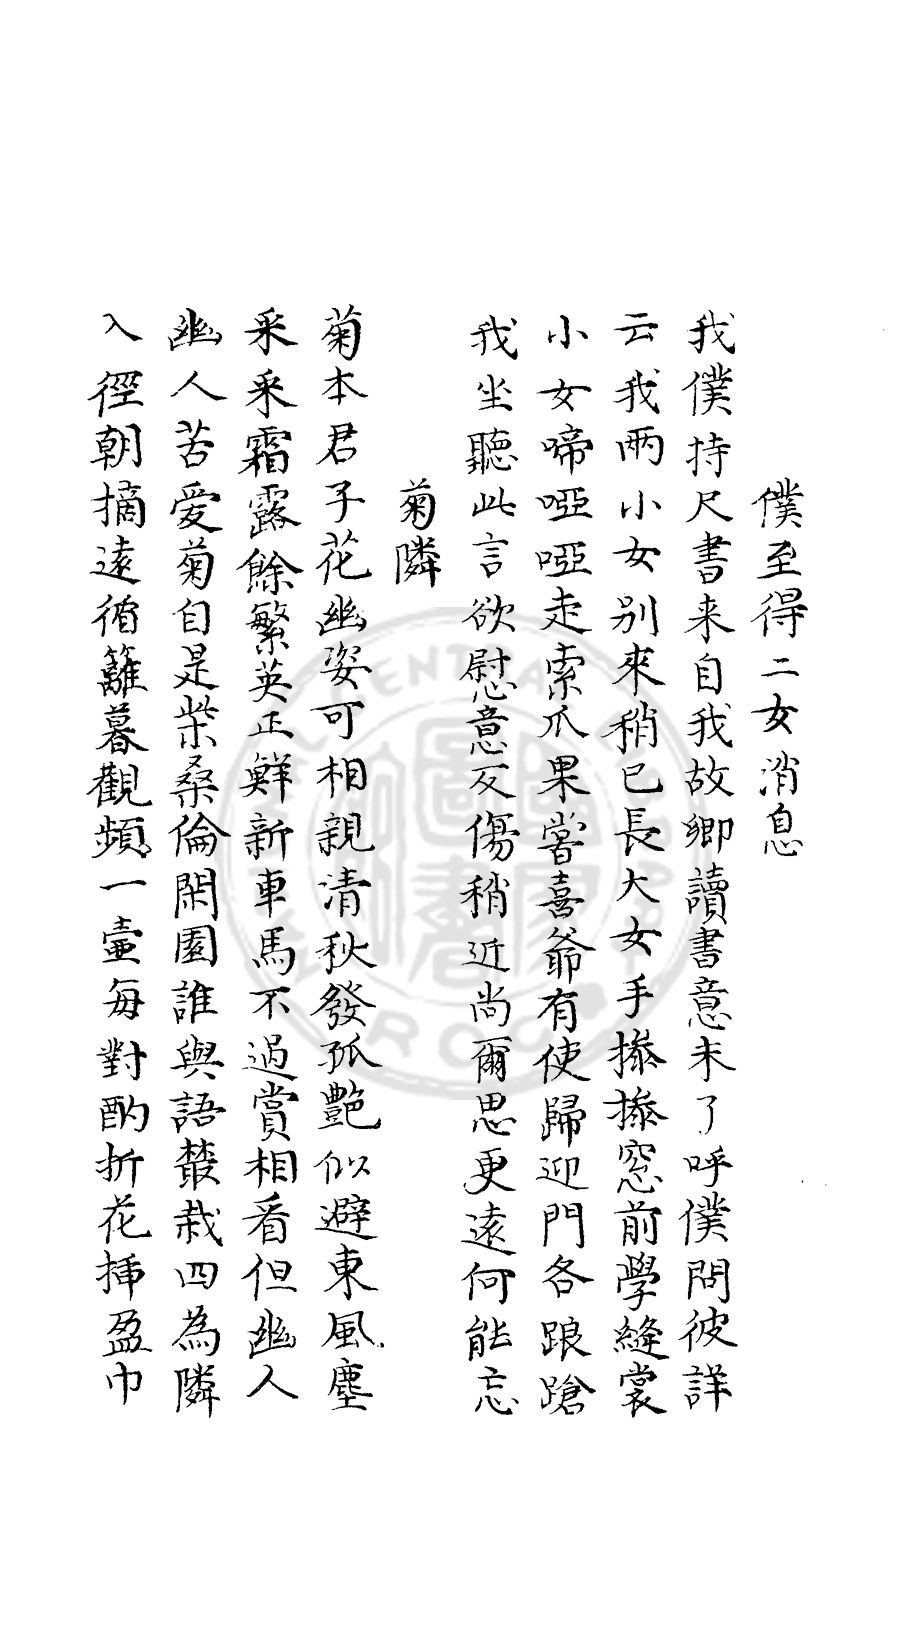 僕至得二女消息
我僕持尺書来自我故鄉讀書意未了呼僕問彼詳
云我兩小女别來稍已長大女手摻摻窓前學縫裳
小女啼啞啞走索爪果甞喜爺有使歸迎門各踉蹌
我坐聽此言欲慰意反傷稍近尚爾思更遠何能忘
菊隣
菊本君子花幽姿可相親清秋發孤艶似避東風塵
采采霜露餘繁英正鮮新車馬不過賞相看但幽人
幽人苦愛菊自是柴桑倫閑園誰與語叢栽四為隣
入徑朝摘遠循籬暮觀頻一壷每對酌折花揷盈巾